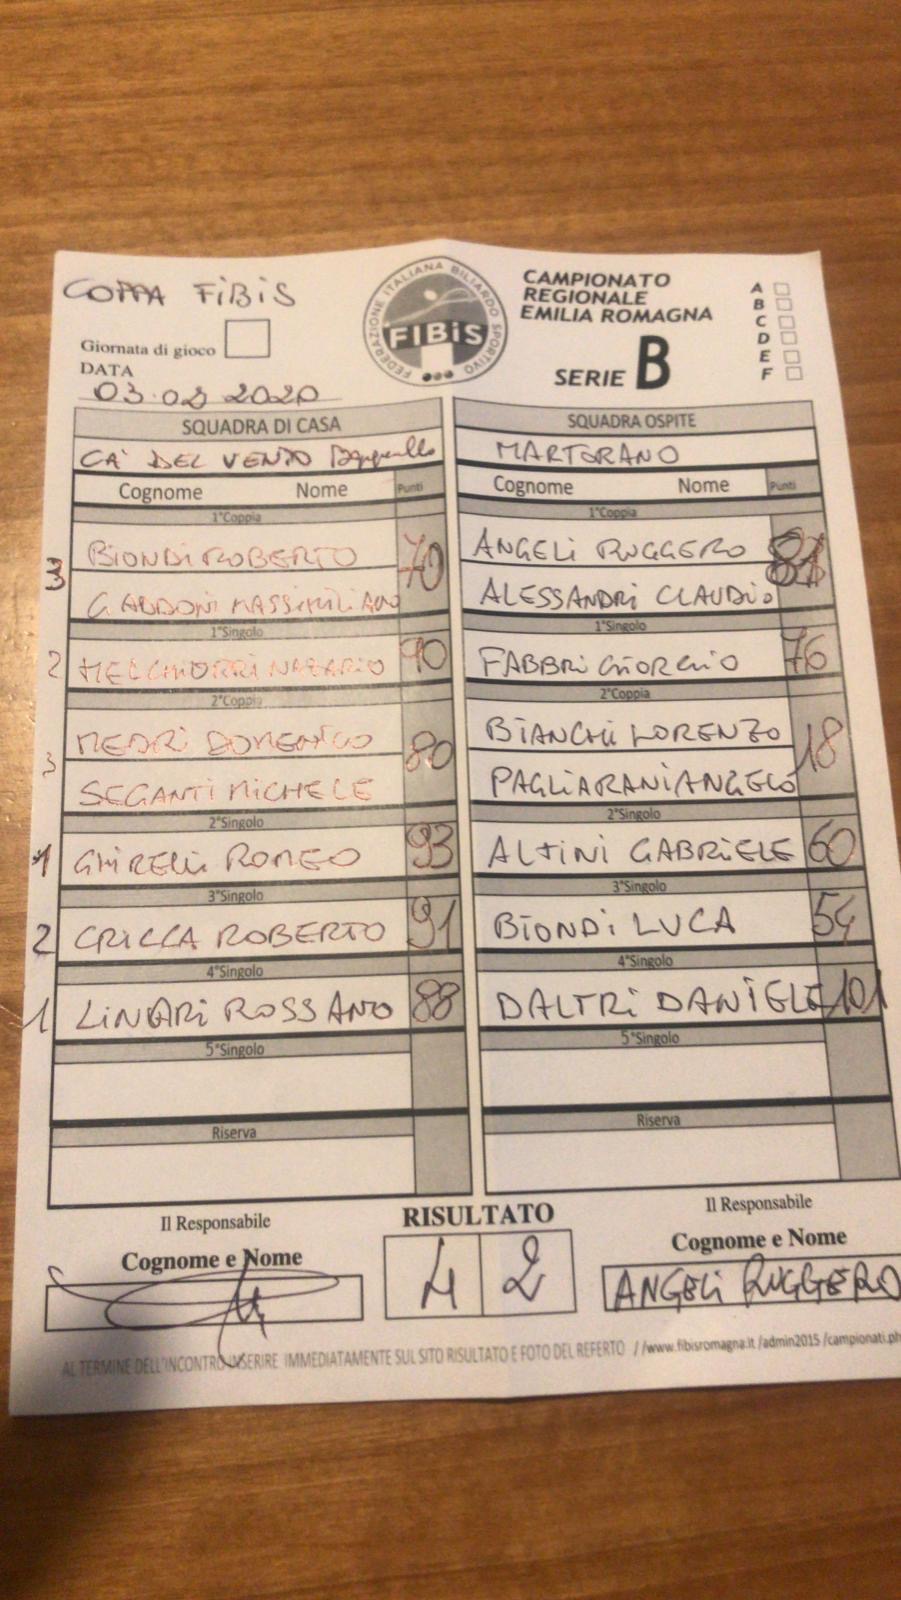 COPPA FIBIS
FEDERAZIONE ITALIANA BILIARDO SPORTIVO
FIBiS
CAMPIONATO
REGIONALE
EMILIA ROMAGNA
SERIE B
A
B
C
D
E
F
Giornata di gioco
DATA
03.02 2020
SQUADRA DI CASA
SQUADRA OSPITE
CA' DEL VENTO
MARTORANO
Cognome Nome Punti
Cognome Nome Punti
1°Coppia
1°Coppia
3 BIONDI ROBERTO 70
GADDONI MASSIMILIANO
ANGELI RUGGERO
ALESSANDRI CLAUDIO
1°Singolo
1°Singolo
2 MELCHIORRI NAZARIO 90
FABBRI GIORGIO 76
2°Coppia
2°Coppia
3 MEDRI DOMENICO 80
SEGANTI MICHELE
BIANCHI LORENZO 18
PAGLIARANI ANGELO
2°Singolo
2°Singolo
1 GHIRELLI ROMEO 93
ALFINI GABRIELE 60
3°Singolo
3°Singolo
2 CRICCA ROBERTO 91
BIONDI LUCA 54
4°Singolo
4°Singolo
1 LINARI ROSSANO 88
DALTRI DANIELE 101
5°Singolo
5°Singolo
Riserva
Riserva
Il Responsabile
RISULTATO
Il Responsabile
Cognome e Nome
4 2
Cognome e Nome
ANGELI RUGGERO
AL TERMINE DELL'INCONTRO INSERIRE IMMEDIATAMENTE SUL SITO RISULTATO E FOTO DEL REFERTO //www.fibisromagna.it /admin2015 /campionati.ph